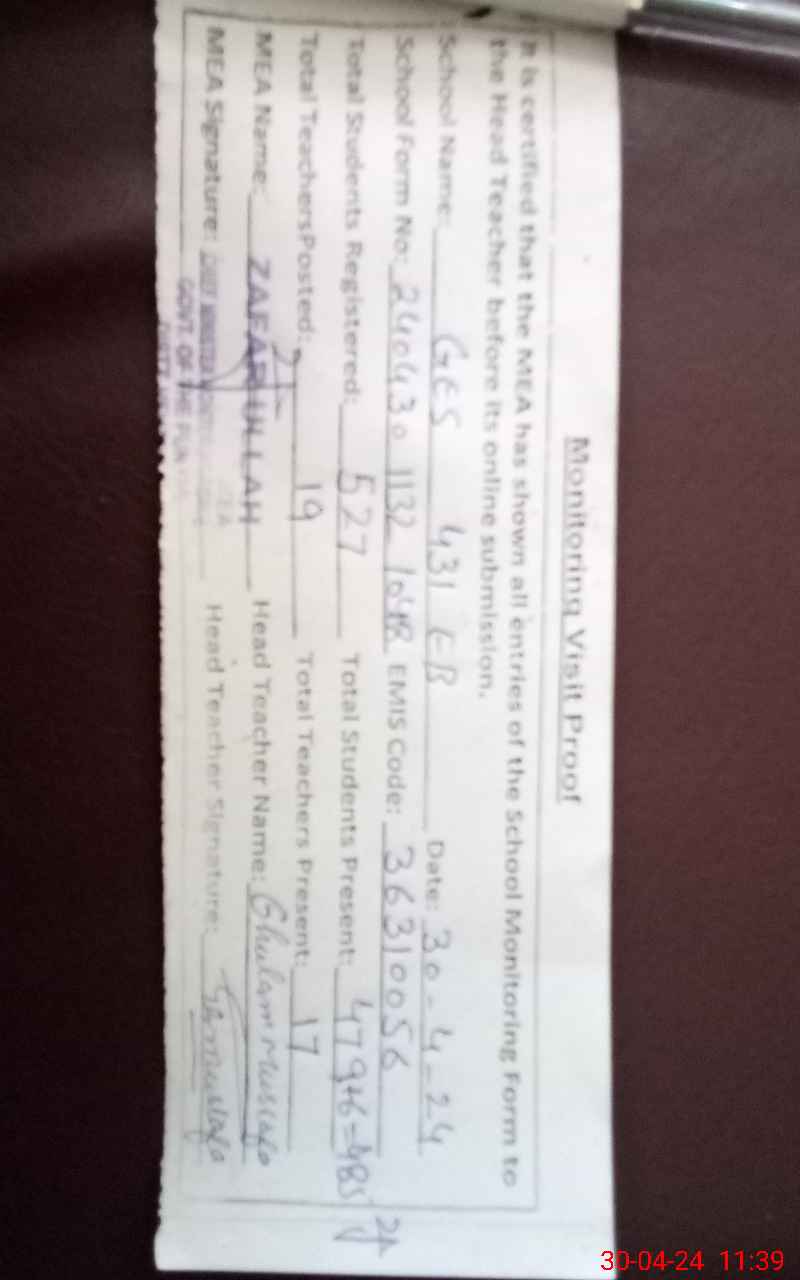 Monitoring Visit Proof
It is certified that the MEA has shown all entries of the School Monitoring Form to
the Head Teacher before its online submission.
School Name: GES 431 EB Date: 30-4-24
School Form No: 240430 1132 EMIS Code: 36310056
Total Students Registered: 527 Total Students Present: 479+6=485
Total Teachers Posted: 19 Total Teachers Present: 17
MEA Name: ZAFAR ULLAH Head Teacher Name: Ghulam Mustafa
MEA Signature: Head Teacher Signature: Gh Mustafa
GOVT. OF THE PUN
30-04-24 11:39